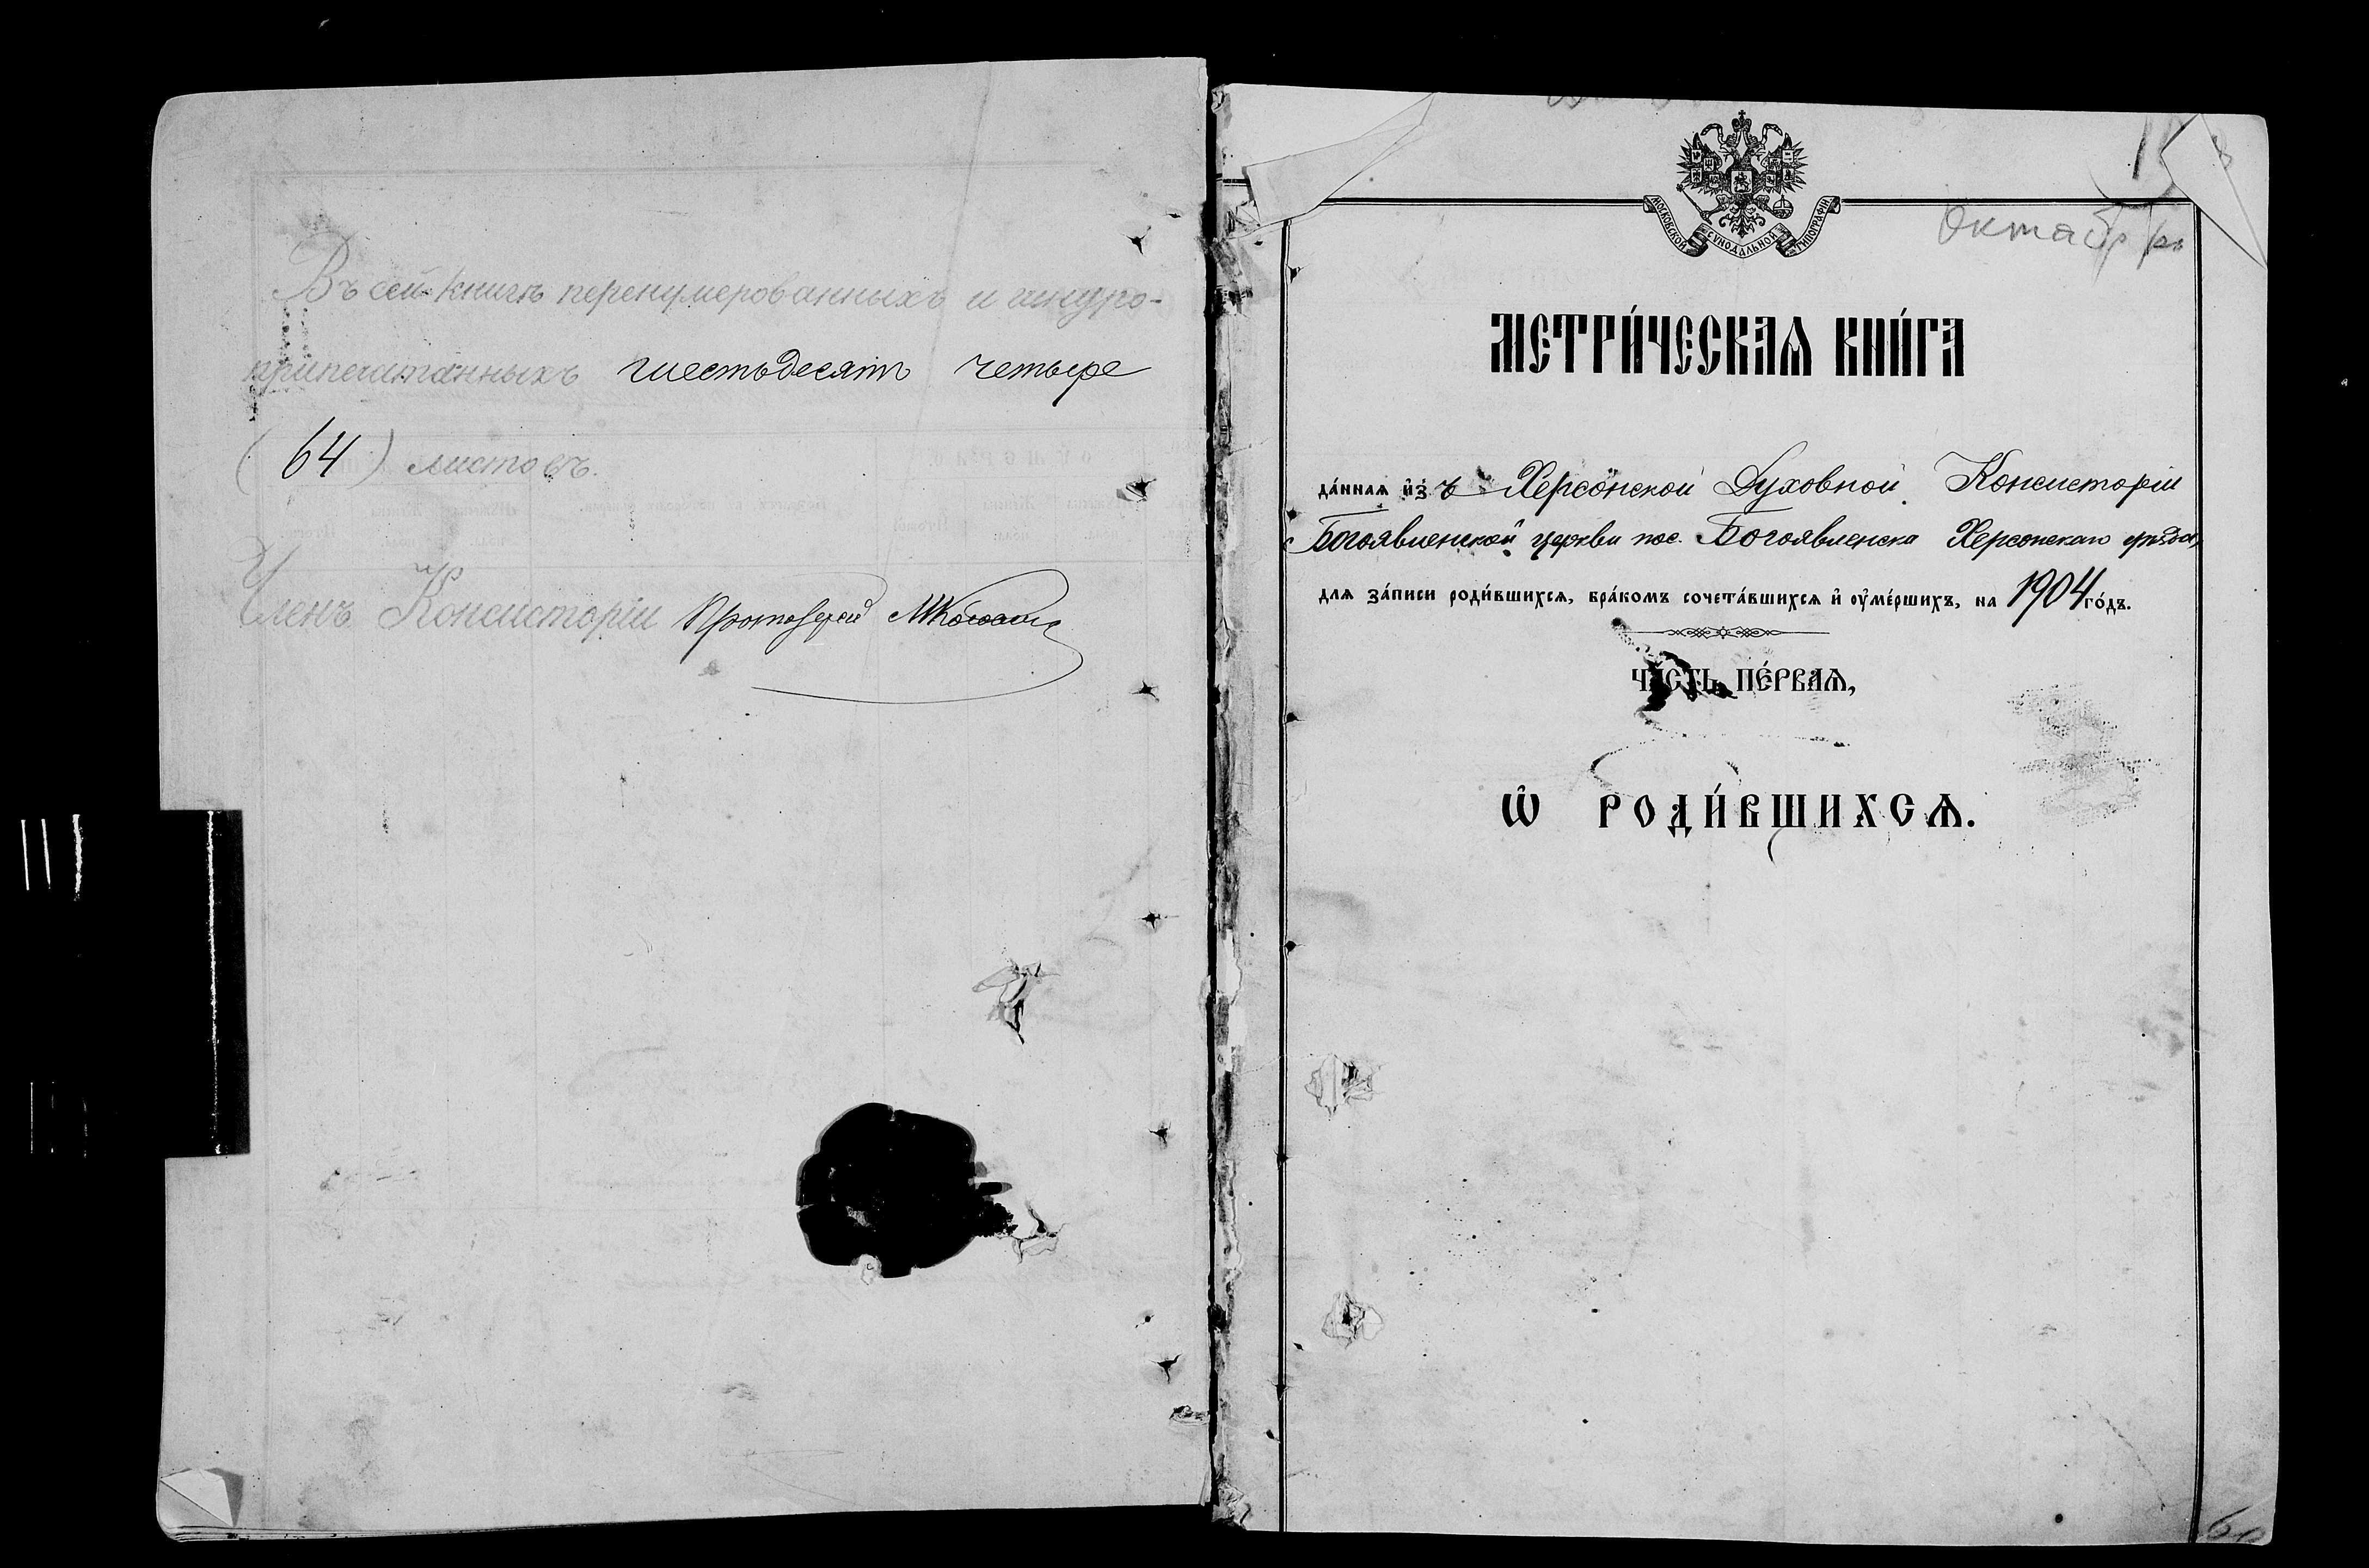 Въ сей книгѣ перенумерованныхъ и шнуро-
припечатанныхъ шестьдесятъ четыре
(64) листовъ.
Членъ Консисторіи Протоіерей
МОСКОВСКОЙ СѴНОДАЛЬНОЙ ТИПОГРАФІИ
Октябрь
МЕТРИ́ЧЕСКАѦ КНИ́ГА
да́ннаѧ и҆зъ Херсонской Духовной Консисторіи
Богоявленской церкви пос. Богоявленска Херсонскаго уѣзда,
длѧ за́писи роди́вшихсѧ, бра́комъ сочета́вшихсѧ и҆ ᲂу҆ме́ршихъ, на 1904 го́дъ.
ЧА́СТЬ ПЕ́РВАѦ,
Ѡ҆ РОДИ́ВШИХСѦ.